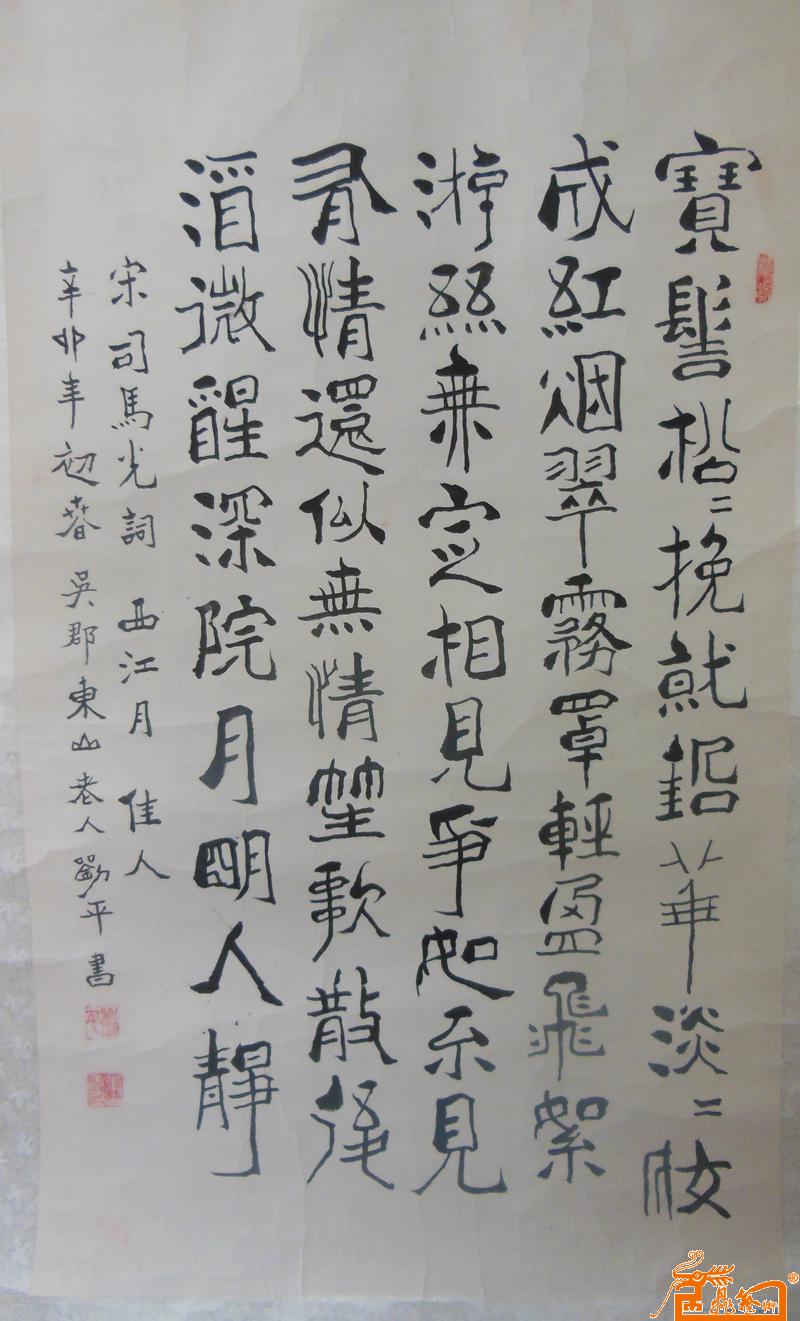 寶髻松〻挽就鉛華淡〻妝
成紅烟翠霧罩輕盈飛絮
游絲無定相見爭如不見
有情還似無情笙歌散後
酒微醒深院月明人靜
宋司馬光詞 西江月 佳人
辛卯年初春 吳郡東山老人劉平書